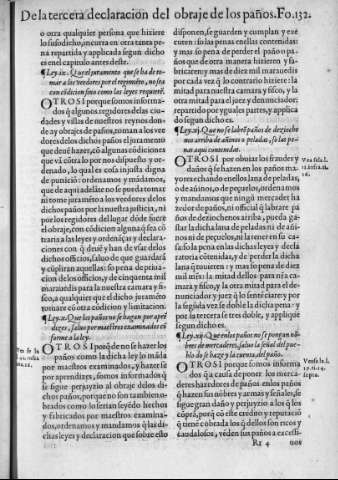 De la tercera declaracion del obraje de los paños. Fo. 132.
o otra qualquier persona que hiziere
lo susodicho, incurra en otra tanta pe
na repartida y applicada segun dicho
es en el capitulo antes deste.
¶ Ley.ix. Que el juramento que se ha de to-
mar a los veedores por el regimiento, no sea
con codicion sino como las leyes requierē.
OTROSI porque somos informa-
dos q̃ algunos regidores de las ciu
dades y villas de nuestros reynos don-
de ay obrajes de paños, toman a los vee
dores delos dichos paños el juramento
que deuē hazer, cō algunas condiciones
que vā cōtra lo por nos dispuesto y or-
denado, lo qual es cosa injusta digna
de punicio: ordenamos y mandamos,
que de aqui adelāte no se pueda tomar
ni tome juramēto a los veedores delos
dichos paños por la nuestra justicia, ni
por los regidores del lugar dōde fuere
el obraje, con cōdicion alguna q̃ sea cō
traria a las leyes y ordenāças y declara
ciones con q̃ deuē y han de vsar delos
dichos officios, saluo de que guardarā
y cūpliran aquellas: so pena de priua-
cion delos officios, y de cinquenta mil
marauedis para la nuestra camara y fis-
co, a qualquier que el dicho juramēto
tomare cō otra cōdicion y limitacion.
¶ Ley.x. Que los paños no se hagan por apre
dizes, saluo por maestros examinados en
forma a la ley.
OTROSI porq̃ de no se hazer los
paños como la dicha ley lo māda
por maestros examinados, y hazer se
por aprendizes, somos informados q̃
se sigue perjuyzio al obraje delos di-
chos paños, porque no son tambien o-
brados como lo serian seyēdo hechos
y fabricados por maestros examina-
dos, ordenamos y mandamos q̃ las di-
chas leyes y declaracion que sobre esto
disponen, se guarden y cumplan y exe
cuten: so las penas enellas contenidas:
y mas so pena de perder el paño o pa-
ños que de otra manera hizieren y fa-
bricaren: y mas de diez mil marauedis
por cada vez q̃ lo contrario hiziere: la
mitad para nuestra camara y fisco, y la
otra mitad para el juez y denunciador:
repartido por yguales partes, y applica
do segun dicho es.
¶ Ley.xj. Que no se labrē paños de dezioche
nos arriba de añinos o peladas, so las pe-
nas aqui contenidas.
OTROSI por obuiar los fraudes y
daños q̃ se hazen en los paños ma-
yores echando enellos lana de peladas,
o de añinos, o de peguelos, ordenamos
y mandamos que ningū mercader ha
zedor de paños, ni official q̃ labrare pa
ños de deziochenos arriba, pueda gas-
tar la dicha lana de peladas ni de añi-
nos ni de peguelos, ni la tener en su ca
sa so la pena en las dichas leyes y decla
ratoria cōtenidas, y de perder la dicha
lana q̃ touieren: y mas so pena de diez
mil mrs: la mitad dellos para nr̄a ca-
mara y fisco, y la otra mitad para el de-
nunciador y juez q̃ lo sentēciare: y por
la segūda vez se doble la dicha pena y
por la tercera se tres doble, y applique
segun dicho es.
OTROSI porque somos informa
dos q̃ a causa de poner los merca-
deres hazedores de paños enlos paños
q̃ hazen sus nōbres y armas y señales, se
sigue gran daño y perjuyzio a los q̃ los
cōprā, porq̃ cō este credito y reputaciō
q̃ tiene cobrada los q̃ dellos son ricos y
caudalosos, vēden sus paños a excessi-
R1 4
uos